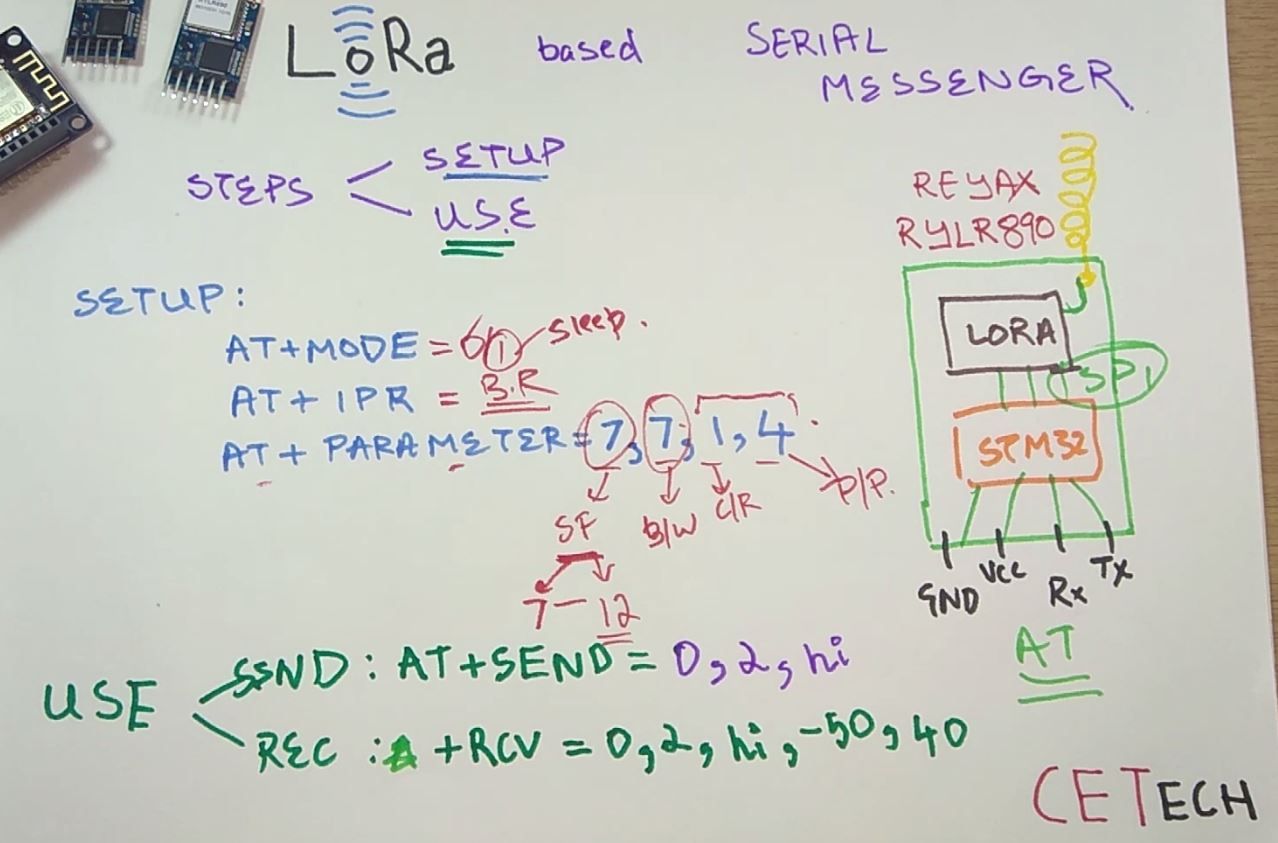 LoRa based SERIAL
MESSENGER
STEPS SETUP
USE
REYAX
RYLR890
SETUP:
AT+MODE = 0/1 sleep.
AT + IPR = B.R
AT + PARAMETER = 7, 7, 1, 4
SF B/W C/R P/P.
7 - 12
LORA
SPI
STM32
GND VCC Rx Tx
AT
USE
SEND : AT+SEND = 0,2,hi
REC : +RCV = 0,2,hi,-50,40
CETECH